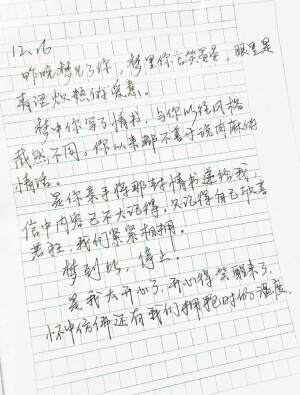 12.16
昨晚梦见了你，梦里你言笑晏晏，眼里是
毒涩炽热的爱意。
梦中你写了情书，与你以往风格
截然不同。你从来都不善于说肉麻的
情话。
是你亲手将那封情书递给我，
信中内容已不大记得，只记得自己欣喜
若狂，我们紧紧相拥。
梦到此，停止。
是我太开心了，开心得笑醒来了，
怀中仿佛还有我们拥抱时的温度。